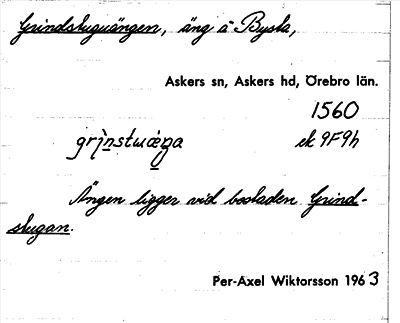 Grindstuguängen, äng å Bysta,
Askers sn, Askers hd, Örebro län.
1560
grı̀nstuuæ̀ŋa ek 9F9h
Ängen ligger vid bostaden Grind-
stugan.
Per-Axel Wiktorsson 1963